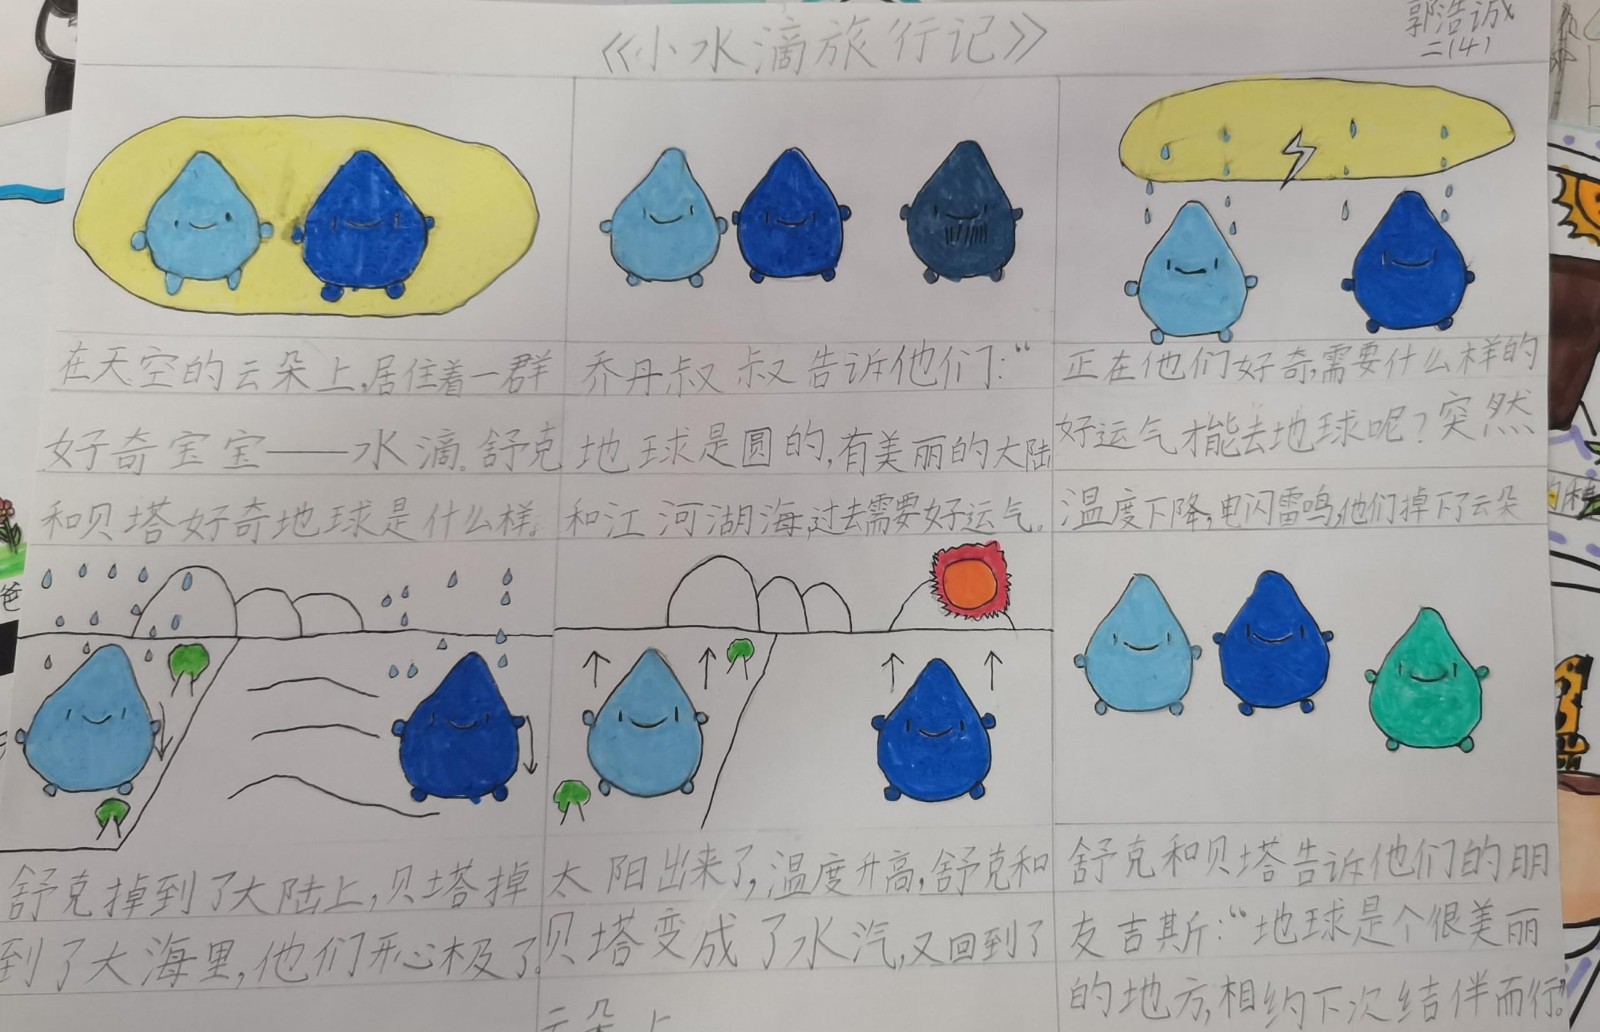 《小水滴旅行记》
郭浩诚
二(4)
在天空的云朵上,居住着一群
好奇宝宝——水滴。舒克
和贝塔好奇地球是什么样。
乔丹叔叔告诉他们:“
地球是圆的,有美丽的大陆
和江河湖海,过去需要好运气。
正在他们好奇,需要什么样的
好运气才能去地球呢?突然
温度下降,电闪雷鸣,他们掉下了云朵
舒克掉到了大陆上,贝塔掉
到了大海里,他们开心极了。
太阳出来了,温度升高,舒克和
贝塔变成了水汽,又回到了
云朵上
舒克和贝塔告诉他们的朋
友吉斯:“地球是个很美丽
的地方,相约下次结伴而行。”